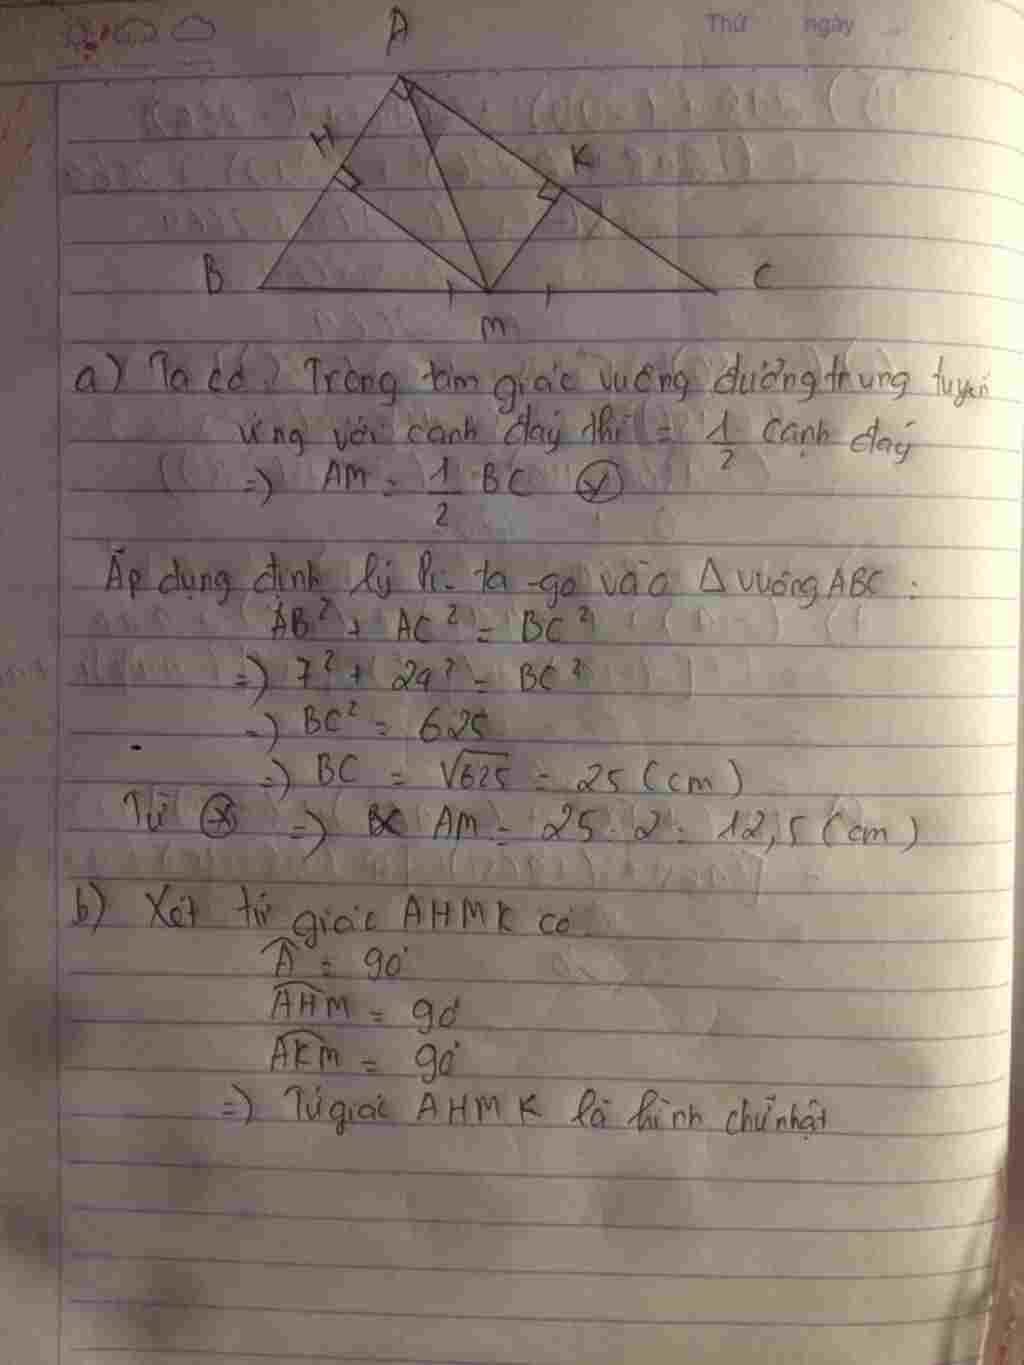 Thứ ngày
A
H
K
B
C
M
a) Ta có: Trong tam giác vuông đường trung tuyến
ứng với cạnh đáy thì = 1/2 cạnh đáy
=) AM = 1/2 BC (*)
Áp dụng định lý Pi-ta-go vào Δ vuông ABC :
AB² + AC² = BC²
=) 7² + 24² = BC²
=) BC² = 625
=) BC = √625 = 25 (cm)
Từ (*) =) AM = 25 : 2 = 12,5 (cm)
b) Xét tứ giác AHMK có
Â = 90°
AHM = 90°
AKM = 90°
=) Tứ giác AHMK là hình chữ nhật